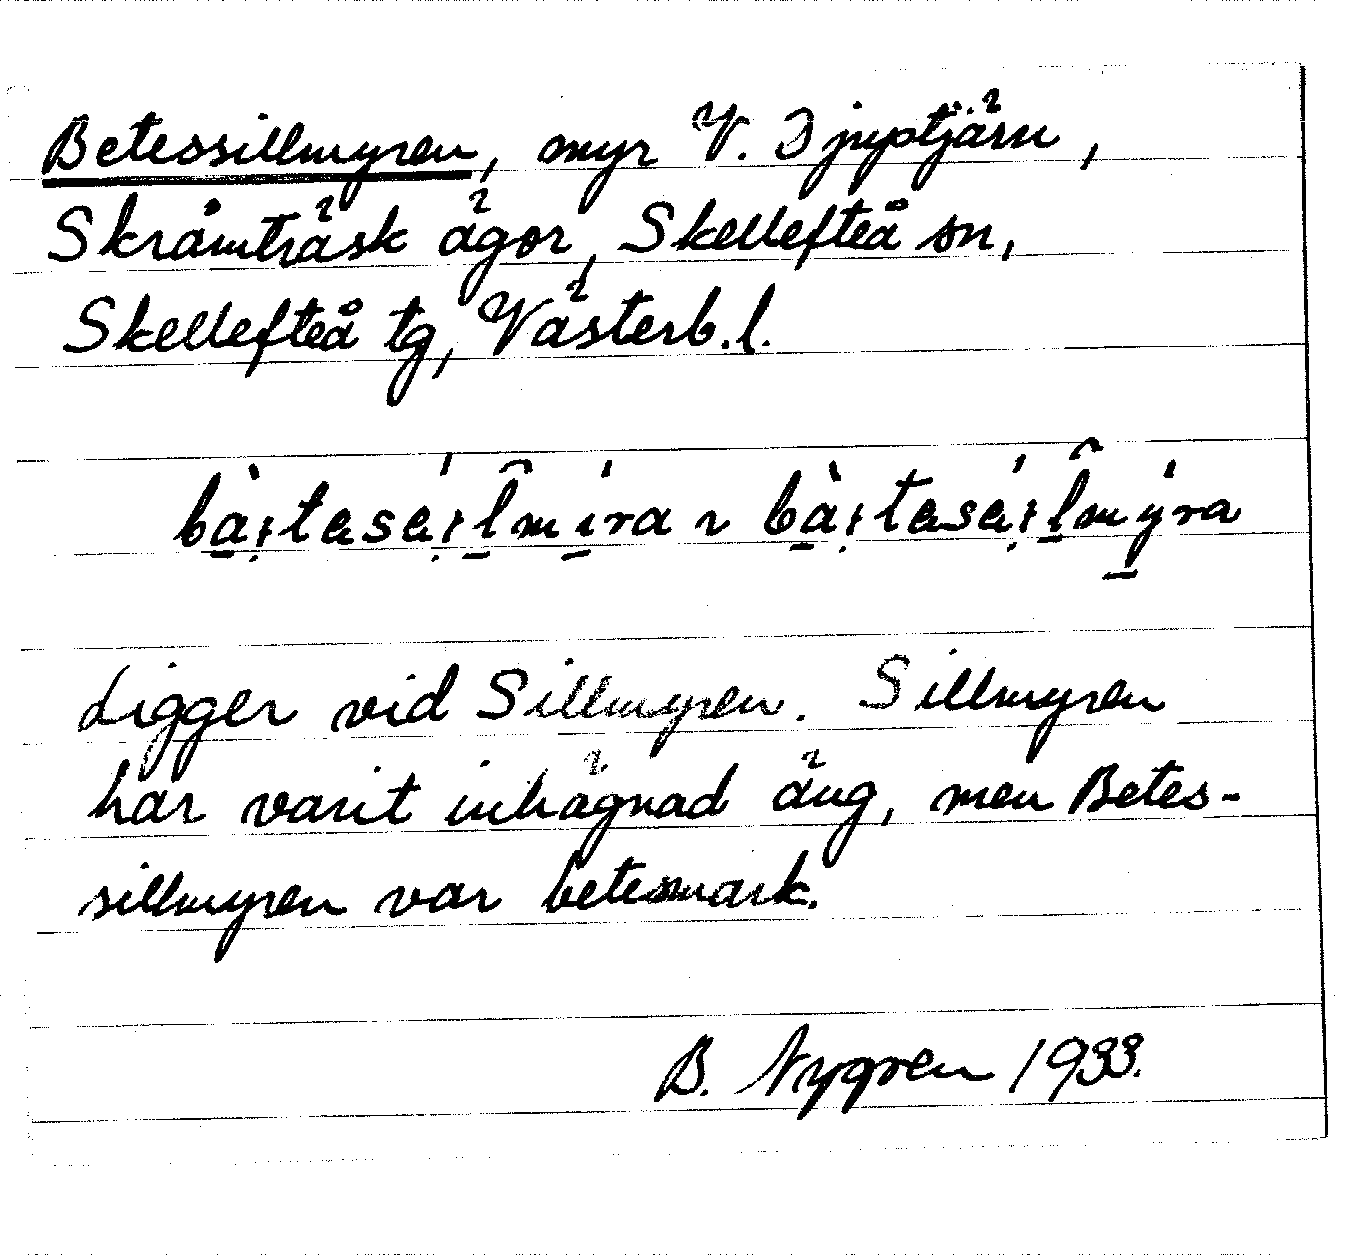 Betessillmyren, myr V. Djuptjärn,
Skråmträsk ägor, Skellefteå sn,
Skellefteå tg, Västerb.l.
Ligger vid Sillmyren. Sillmyren
har varit inhägnad äng, men Betes-
sillmyren var betesmark.
B. Nygren 1933.